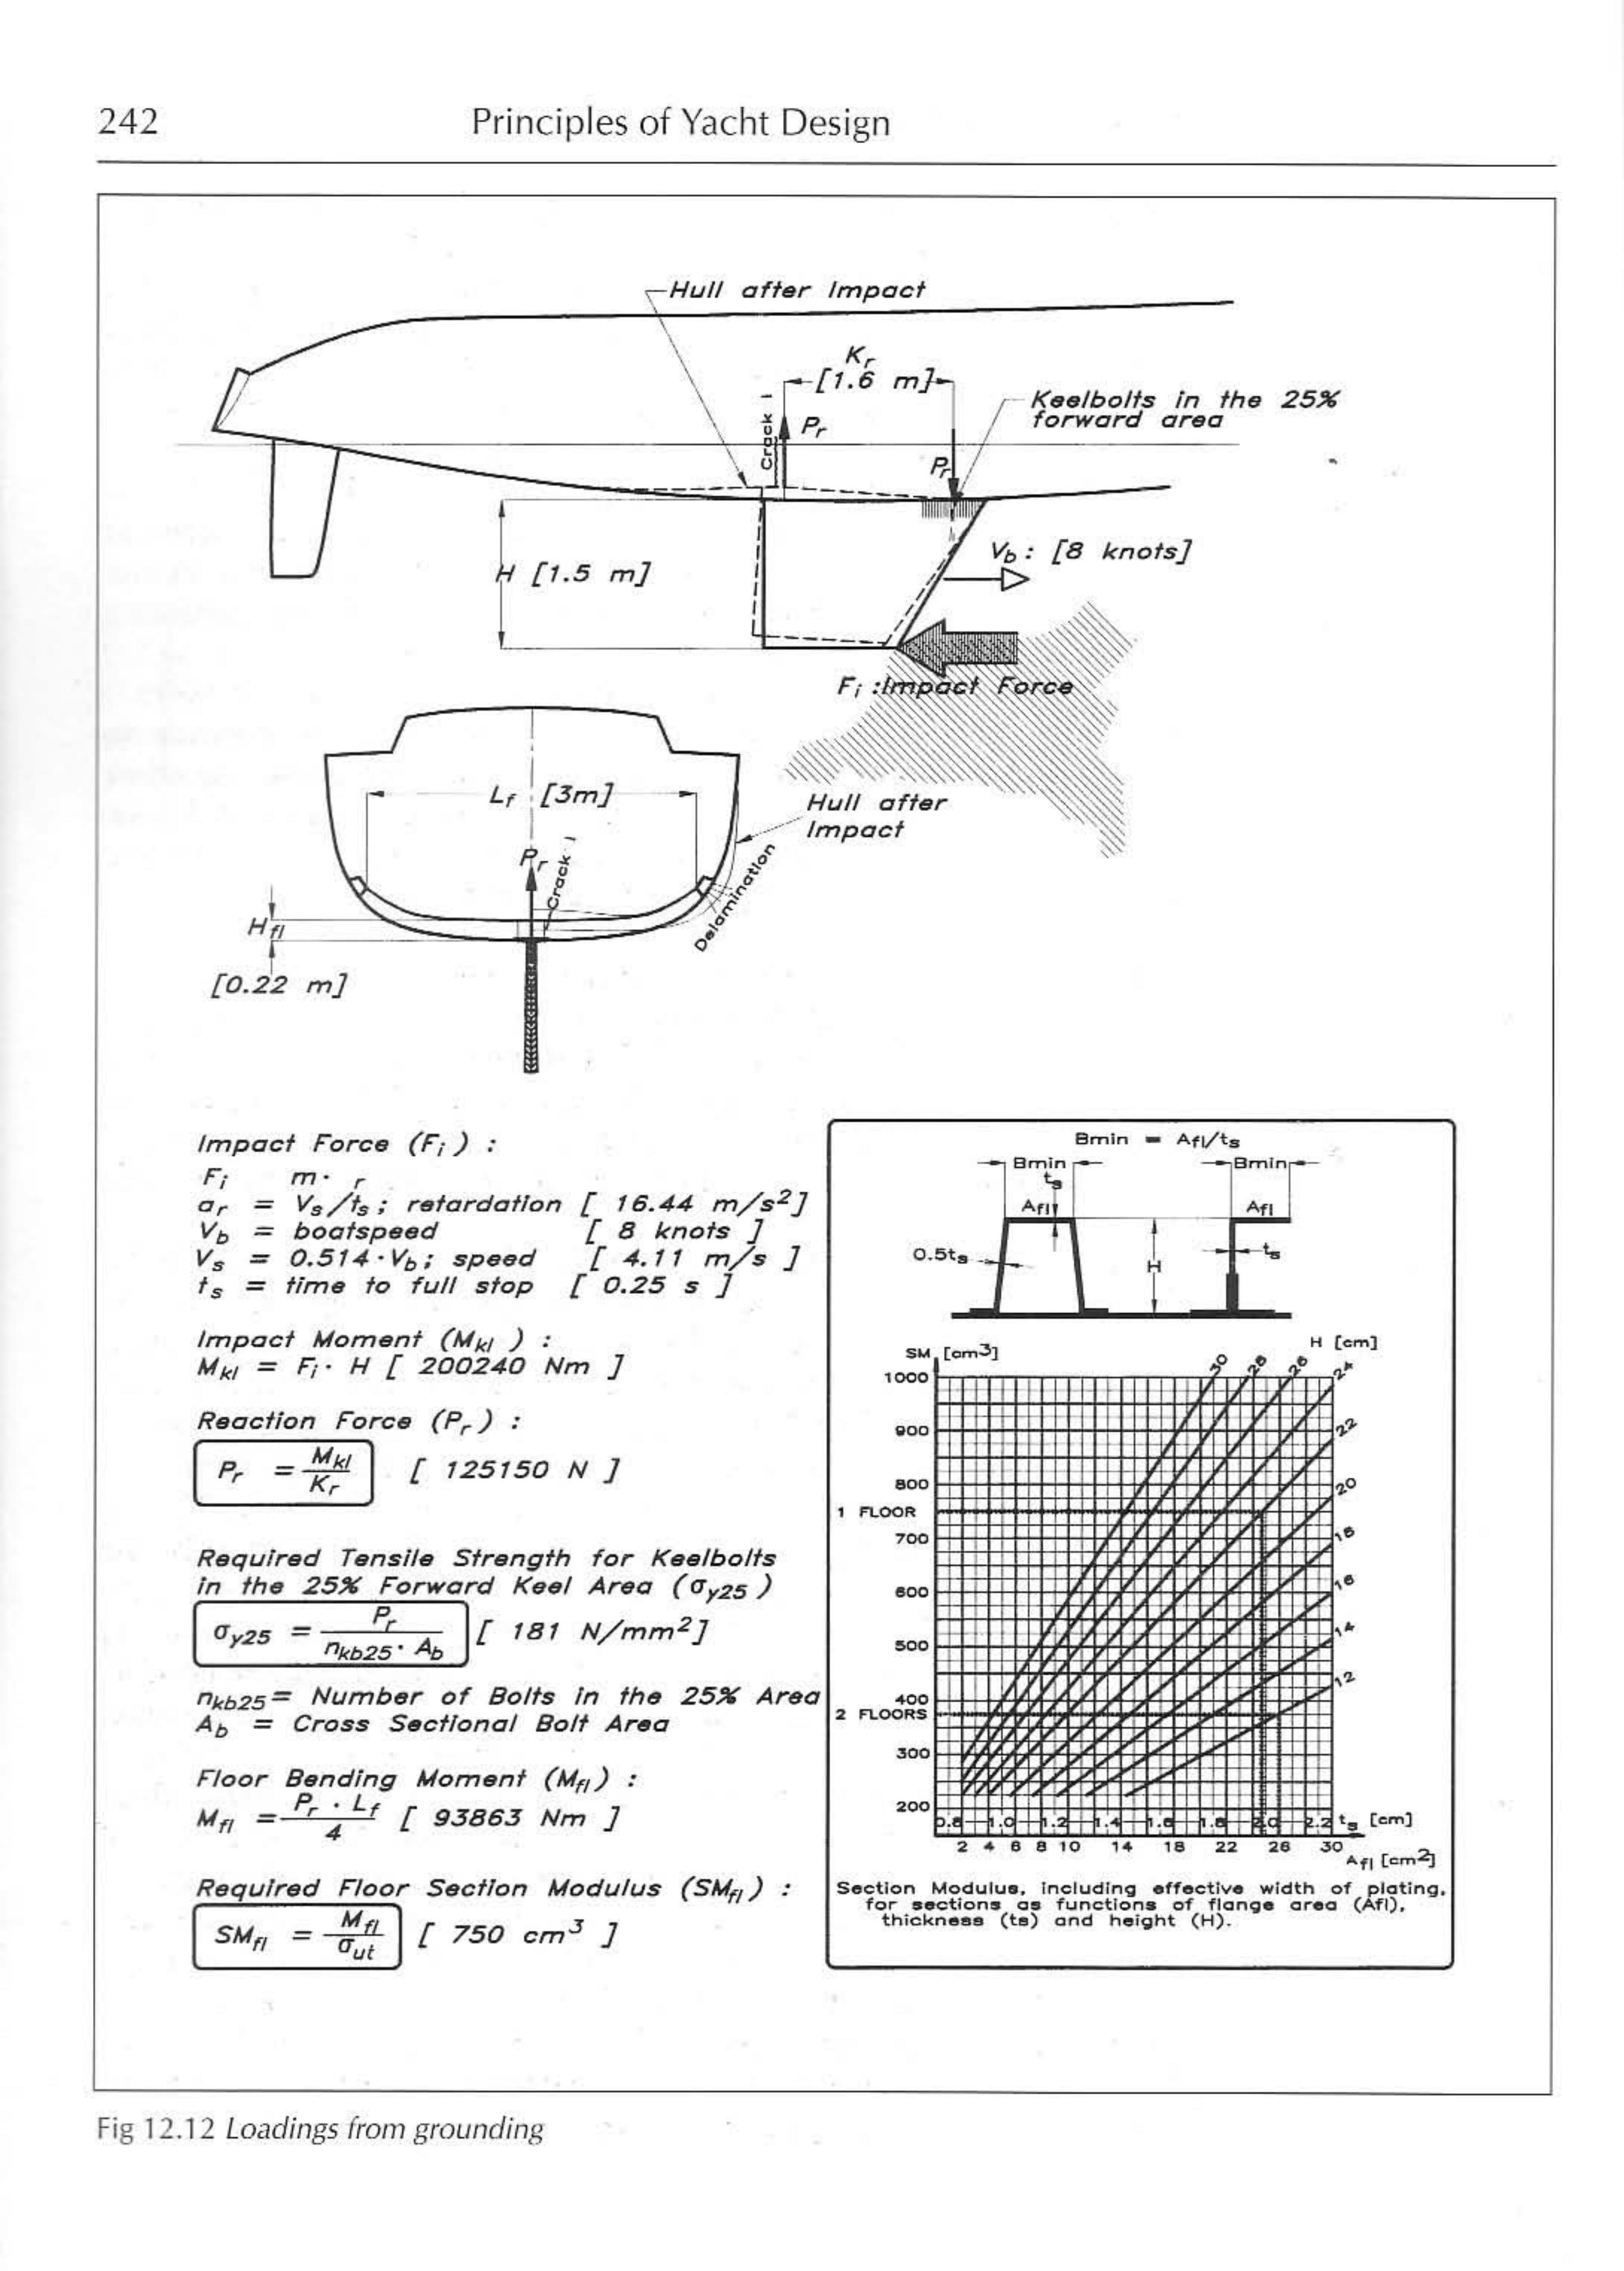 242
Principles of Yacht Design
Hull after Impact
Kr
[1.6 m]
Keelbolts in the 25%
forward area
Crack !
Pr
Pr
Vb : [8 knots]
H [1.5 m]
Fi :Impact Force
Lf [3m]
Hull after
Impact
Pr
Crack !
Delamination
Hfl
[0.22 m]
Impact Force (Fi ) :
Fi m · r
ar = Vs/ts ; retardation [ 16.44 m/s2]
Vb = boatspeed [ 8 knots ]
Vs = 0.514 · Vb ; speed [ 4.11 m/s ]
ts = time to full stop [ 0.25 s ]
Impact Moment (Mkl ) :
Mkl = Fi · H [ 200240 Nm ]
Reaction Force (Pr ) :
Pr = Mkl
Kr
[ 125150 N ]
Required Tensile Strength for Keelbolts
in the 25% Forward Keel Area (σy25 )
σy25 = Pr
nkb25 · Ab
[ 181 N/mm2]
nkb25 = Number of Bolts in the 25% Area
Ab = Cross Sectional Bolt Area
Floor Bending Moment (Mfl ) :
Mfl = Pr · Lf
4
[ 93863 Nm ]
Required Floor Section Modulus (SMfl ) :
SMfl = Mfl
σut
[ 750 cm3 ]
Bmin = Afl/ts
Bmin
Bmin
ts
Afl
Afl
0.5ts
ts
H
SM [cm3]
H [cm]
30 28 26 24
22
20
18
16
14
12
1000
900
800
1 FLOOR
700
600
500
400
2 FLOORS
300
200
0.8 1.0 1.2 1.4 1.6 1.8 2.0 2.2 ts [cm]
2 4 6 8 10 14 18 22 26 30
Afl [cm2]
Section Modulus, including effective width of plating,
for sections as functions of flange area (Afl),
thickness (ts) and height (H).
Fig 12.12 Loadings from grounding